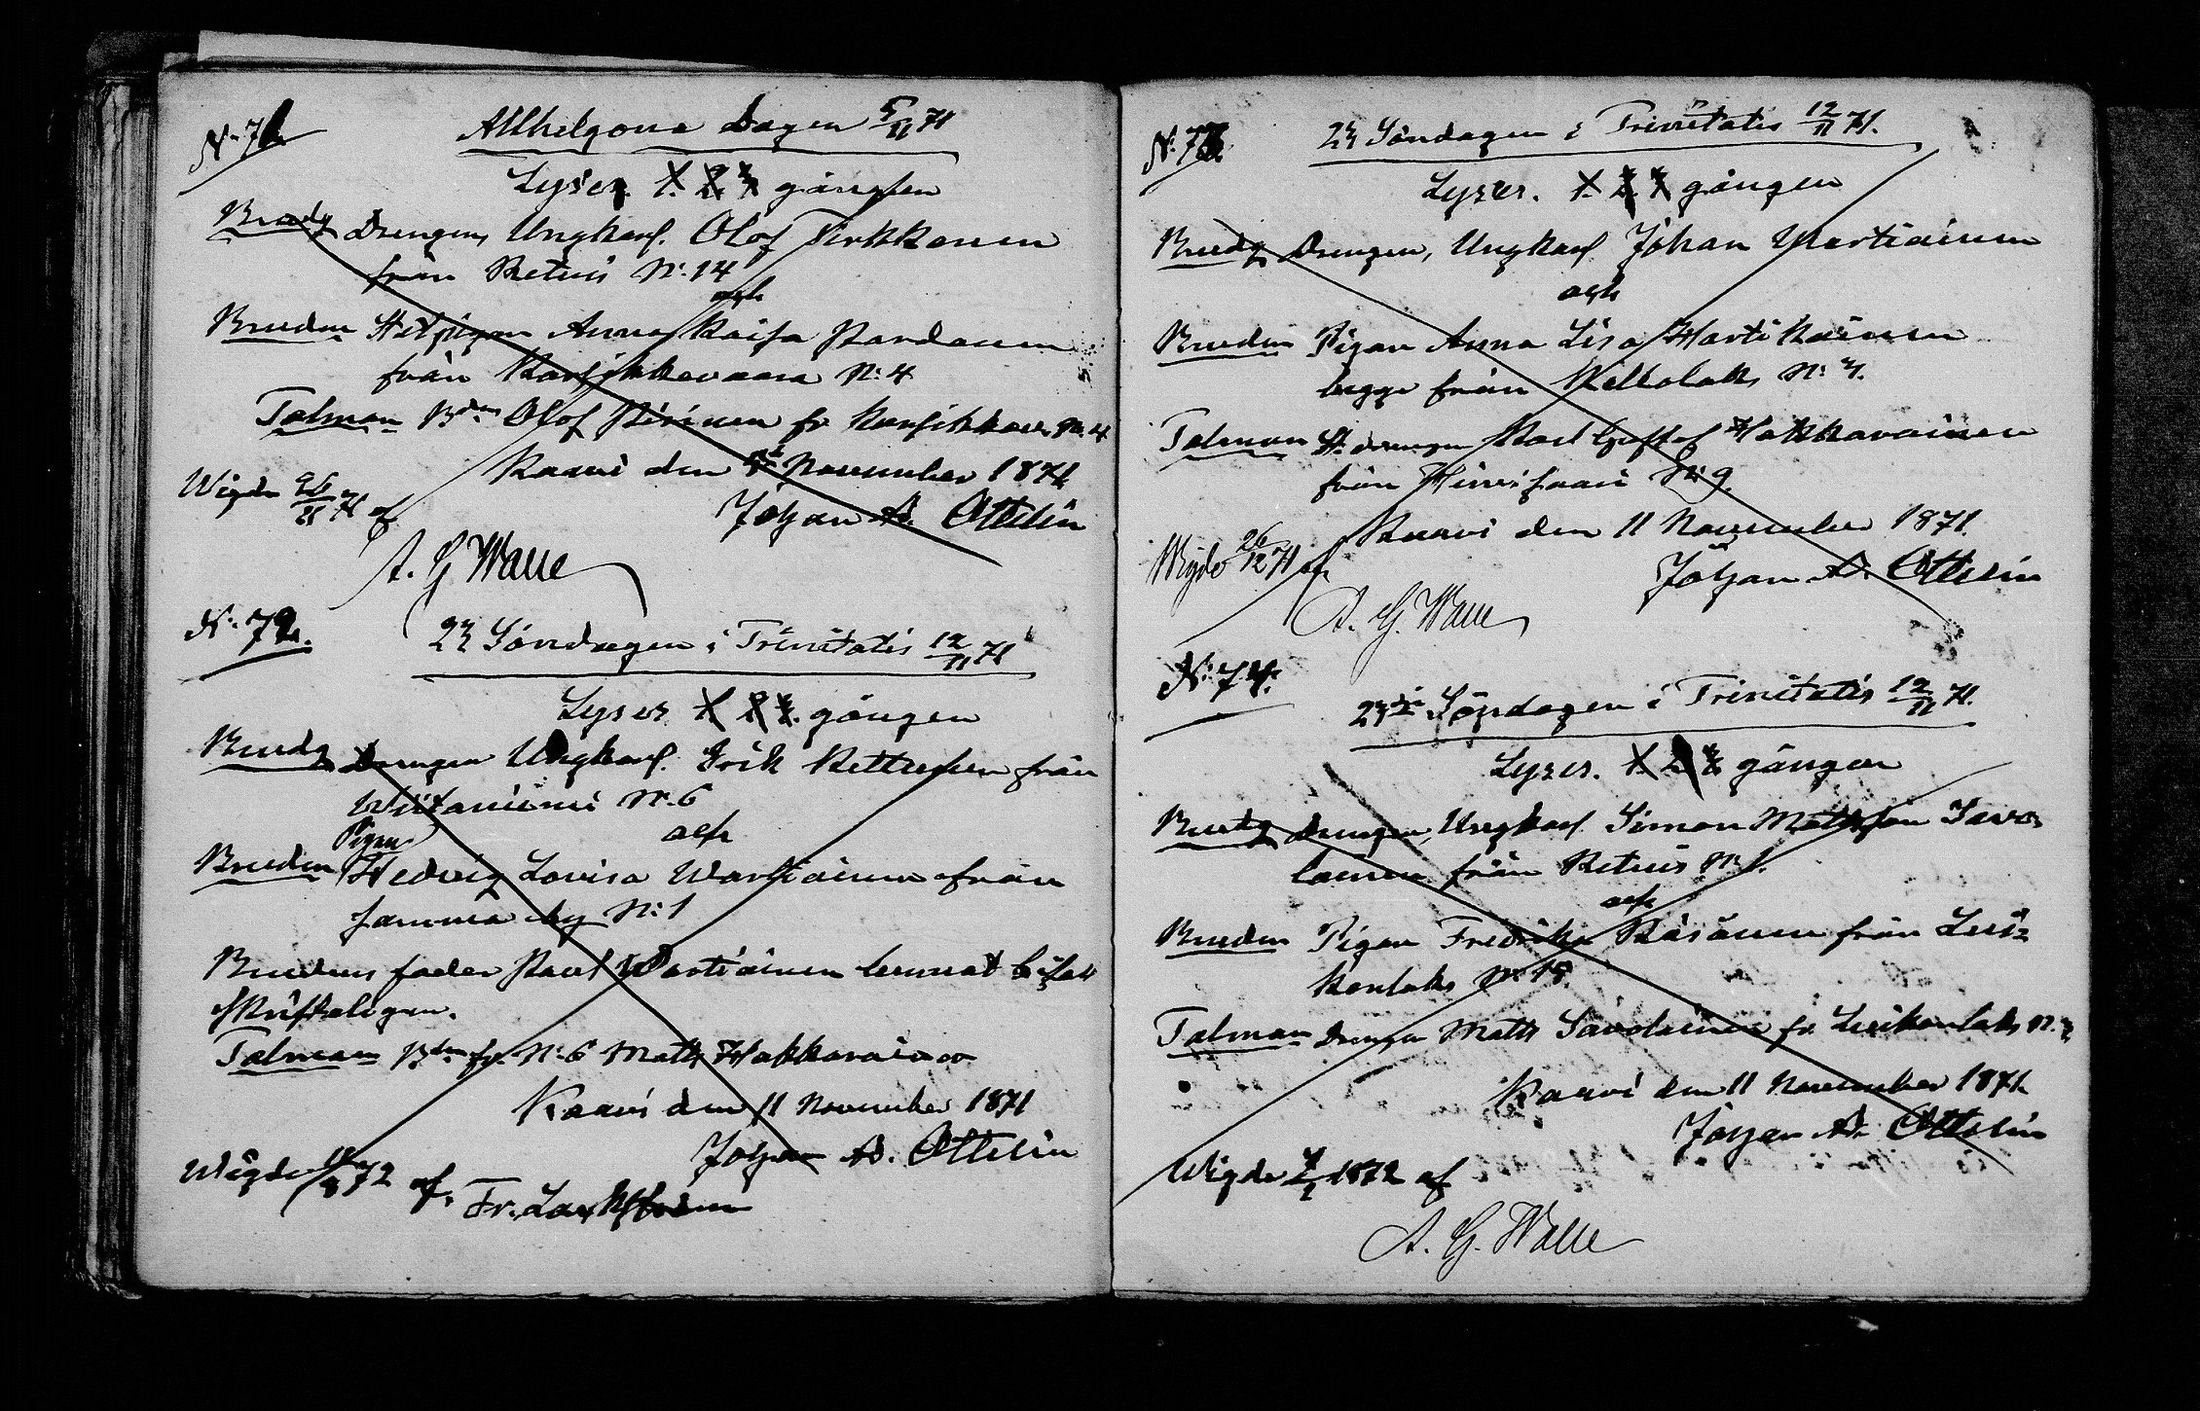 N: 71
Allhelgona Dagen 5/11 71
Lyses 1. 2. 3. gången
Brudg Drengen, Ungkarl. Olof Pirkkonen
från Retuis N: 14
och
Bruden Anna Kaisa Pardanen
från Karsikkovaara N: 4
Talman Bdn Olof Piirinen fr Karsikkov. N: 4
Kaavi den November 1871
Johan Ad. Ottelin
Wigde 26/11 71 af
A. G. Walle
N: 72.
23 Söndagen i Trinitatis 12/11 71
Lyses 1 2 3. gången
Brudg Drengen Ungkarl. Erik Kettunen från
Wiitaniemi N: 6
och
Pigan
Bruden Hedvig Lovisa Wartiainen från
samma by N: 1
Brudens fader Paul Wartiainen lemnat bifall
skrifteligen.
Talman Bdn fr. N: 6 Matts Hakkarainen
Kaavi den 11 November 1871
Johan Ad. Ottelin
Wigde 72 af. Fr.
N: 73
23 Söndagen i Trinitatis 12/11 71.
Lyses. 1. 2. 3 gången
Brudg Drengen, Ungkarl Johan Wartiainen
och
Bruden Pigan Anna Lisa Martikainen
begge från Kellolaks N: 3.
Talman St. drengen Karl Gustaf Hakkarainen
från Hirvisaari N: 9.
Kaavi den 11 November 1871.
Johan Ad. Ottelin
Wigde 26/12 71 af
A. G. Walle
N: 74.
23de Söndagen i Trinitatis 12/11 71.
Lyses. 1. 2 3 gången
Brudg Drengen, Ungkarl Simon Mattsson Savo-
lainen från Retuis N: 1.
och
Bruden Pigan Fredrika Räsänen från Lui-
konlaks N: 18
Talman Drengen Matts Savolainen fr. Luikonlaks N: 3
Kaavi den 11 November 1871.
Johan Ad. Ottelin
Wigde 1872 af
A. G. Walle